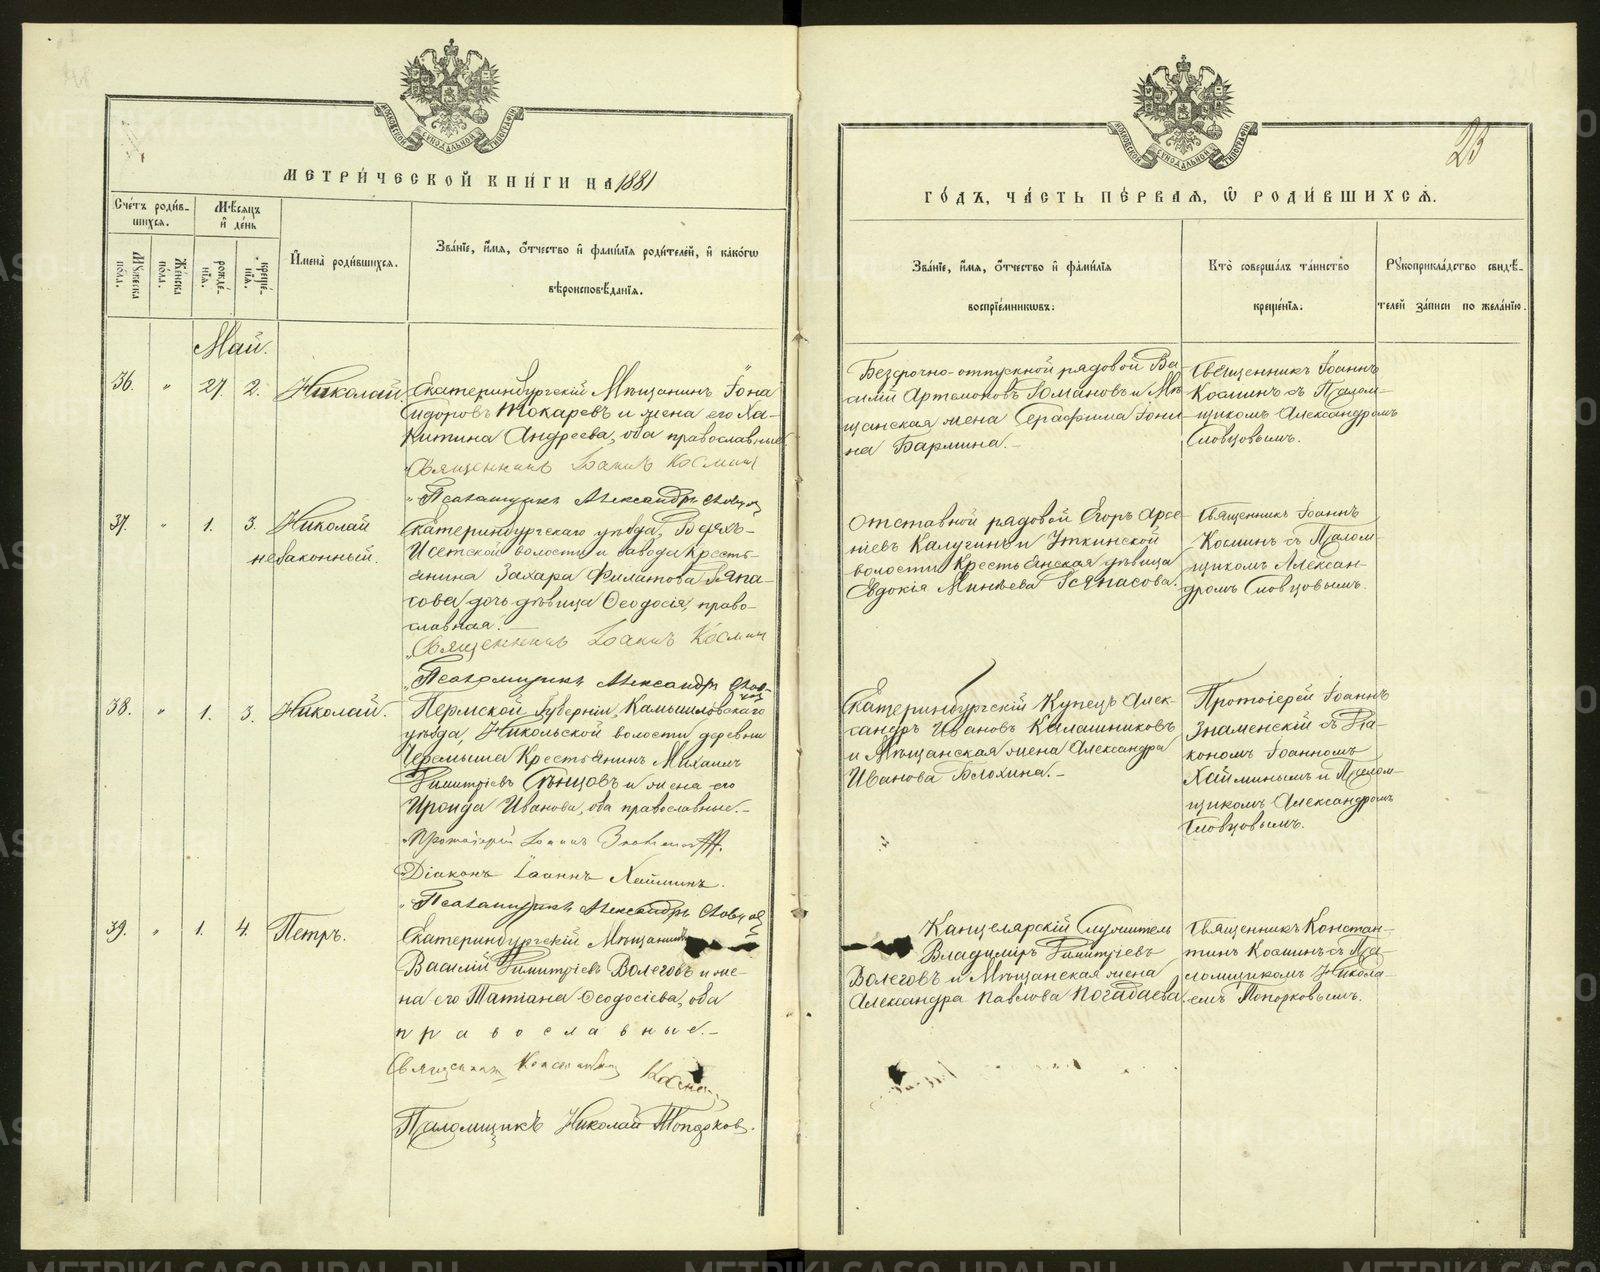 МЕТРИ́ЧЕСКОЙ КНИ́ГИ НА 1881
Сче́тъ роди́в-
шихся.
Мѣсяцъ
и҆ де́нь
Му́жеска
по́лъ.
Же́нска
по́лъ.
рожде́-
нїя.
креще́-
нїя.
И҆мена̀ роди́вшихся.
Зва́нїе, и҆́мя, ѻ҆́тчество и҆ фами́лїя роди́телей, и҆ како́гѡ
вѣроисповѣ́данїя.
Май.
36. " 27 2. Николай.
Екатеринбургскій Мѣщанинъ Іона
Сидоровъ Токаревъ и жена его Ха-
ритина Андреева, оба православные.
Священникъ Іоаннъ Косминъ
Псаломщикъ Александръ Словцов
37. " 1. 3. Николай
незаконный.
Екатеринбургскаго уѣзда, Верхъ-
Исетской волости и завода Кресть-
янина Захара Филатова
сова дочь дѣвица Ѳеодосія, право-
славная.
Священникъ Іоаннъ Косминъ
Псаломщикъ Александръ Слов-
цов
38. " 1. 3. Николай.
Пермской губерніи, Камышловскаго
уѣзда, Никольской волости деревни
Черемыша Крестьянинъ Михаилъ
Димитріевъ и жена его
Ироида Иванова, оба православные.-
Протоіерей Іоаннъ Знаменскій
Діаконъ Іоаннъ Хайминъ.
Псаломщикъ Александръ Словцов
39. " 1. 4. Петръ.
Екатеринбургскій Мѣщанинъ
Василій Димитріевъ Волеговъ и же-
на его Татіана Ѳеодосіева, оба
православные.-
Священникъ Константинъ Косминъ
Псаломщикъ Николай Топорков.
23
ГО́ДЪ, ЧА́СТЬ ПЕ́РВАЯ, Ѡ҆ РОДИ́ВШИХСЯ.
Зва́нїе, и҆́мя, ѻ҆́тчество и҆ фами́лїя
воспрїе́мникѡвъ:
Кто̀ соверша́лъ та́инство
креще́нїя:
Рꙋкоприкла́дство свидѣ́-
телей за́писи по жела́нїю.
Безсрочно-отпускной рядовой Ва-
силій Артемоновъ Романовъ и Мѣ-
щанская жена Серафима Іони-
на Бармина.-
Священникъ Іоаннъ
Косминъ съ Псалом-
щикомъ Александромъ
Словцовымъ.
Отставной рядовой Егоръ Арсе-
ніевъ Калугинъ и Уткинской
волости Крестьянская дѣвица
Евдокія Минѣева
Священникъ Іоаннъ
Косминъ съ Псалом-
щикомъ Алексан-
дромъ Словцовымъ.
Екатеринбургскій Купецъ Алек-
сандръ Ивановъ Калашниковъ
и Мѣщанская жена Александра
Иванова Блохина.-
Протоіерей Іоаннъ
Знаменскій съ Діа-
кономъ Іоанномъ
Хайминымъ и Псалом-
щикомъ Александромъ
Словцовымъ.
Канцелярскій Служитель
Владиміръ Димитріевъ
Волеговъ и Мѣщанская жена
Александра Павлова Погадаева.
Священникъ Констан-
тинъ Косминъ съ Пса-
ломщикомъ Никола-
емъ Топорковымъ.
METRIKI.GASO-URAL.RU